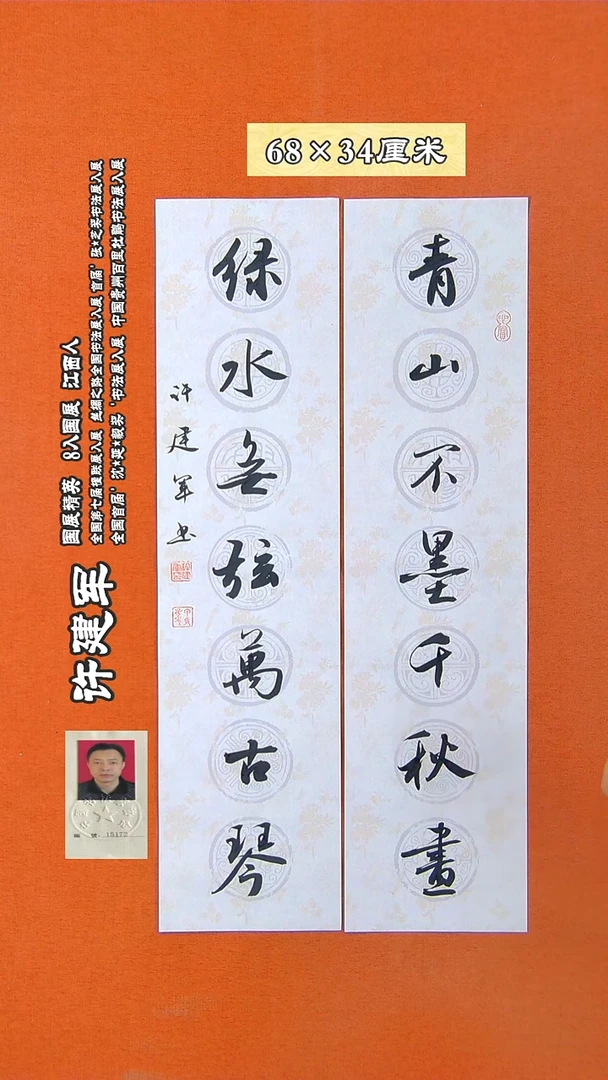 68×34厘米
青山不墨千秋畫
绿水無弦萬古琴
许建军书
许建军
国展精英 8入国展 江西人
全国第七届楹联展入展 丝绸之路全国书法展入展 首届'张*芝奖书法展入展
全国首届'沈*延*毅奖'书法展入展 中国贵州百里杜鹃书法展入展
15172